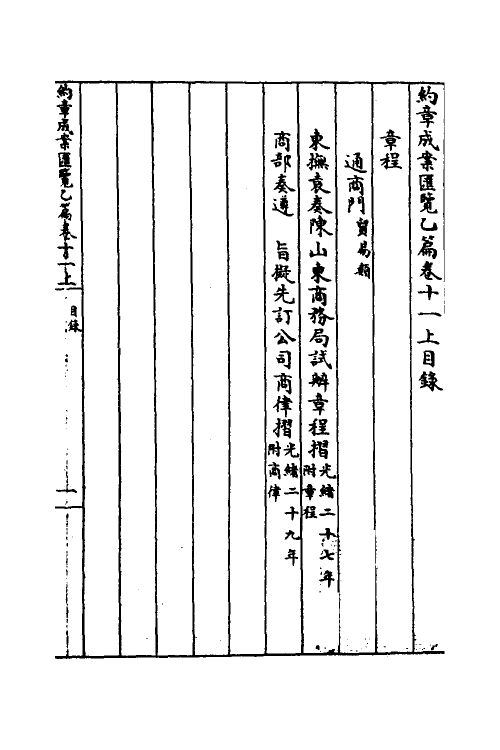 約章成案匯覽乙篇卷十一上目錄
章程
通商門貿易類
東撫袁奏陳山東商務局試辦章程摺光緒二十七年附章程
商部奏遵　旨擬先訂公司商律摺光緒二十九年附商律
約章成案匯覽乙篇卷十一上　目錄　一